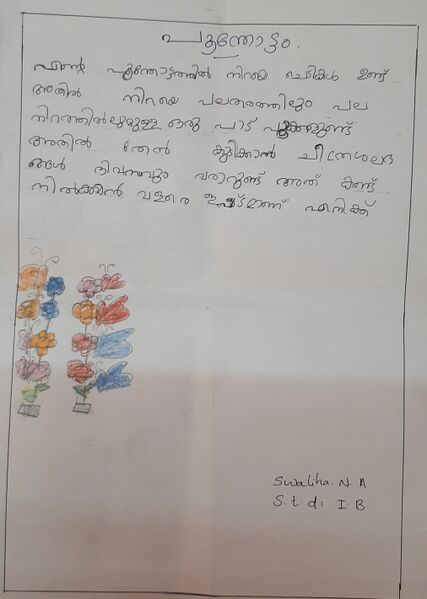 പൂന്തോട്ടം.
എന്റെ പൂന്തോട്ടത്തിൽ നിറയെ ചെടികൾ ഉണ്ട്
അതിൽ നിറയെ പലതരത്തിലും പല
നിറത്തിലുമുള്ള ഒരു പാട് പൂക്കളുണ്ട്
അതിൽ തേൻ കുടിക്കാൻ ചിത്രശലഭ
ങ്ങൾ ദിവസവും വരാറുണ്ട് അത് കണ്ട്
നിൽക്കാൻ വളരെ ഇഷ്ടമാണ് എനിക്ക്
Swaliha. N. A
S.t.d: I B